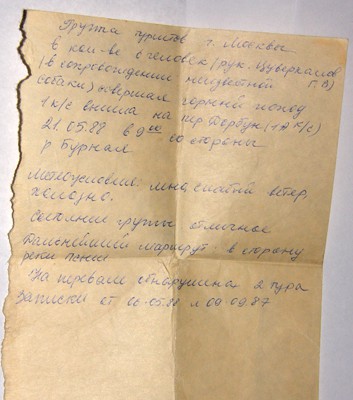 Группа туристов г. Москвы
в кол-ве 6 человек (рук. Цуверкалов
(в сопровождении неизвестной Г.В)
собаки) совершая горный поход
1 к/с вышла на пер. (1А к/с)
21.05.88 в 9⁰⁰ со стороны
р. Бурная
Метеоусловия: мгла, слабый ветер,
холодно.
Состояние группы отличное
Дальнейший маршрут: в сторону
реки
На перевале обнаружена 2 тура
Записки от 06.05.88 и 09.09.87